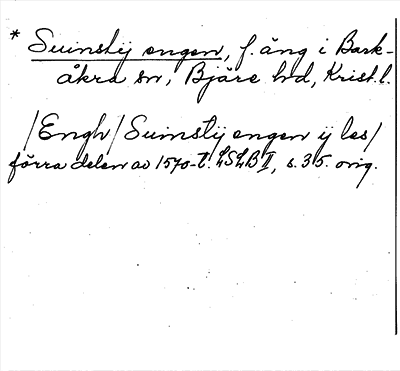 * Suinstij engen, f. äng i Bark-
åkra sn, Bjäre hd, Krist. l.
/Engh/ Suinstij engen ij les/
förra delen av 1570-t. LSLB II, s. 35. orig.